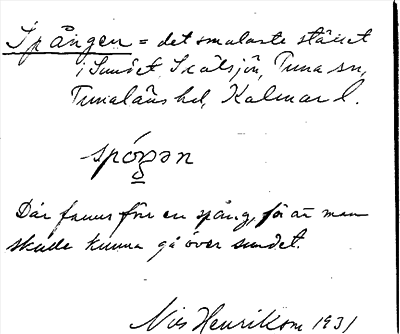 Spången = det smalaste stället
i Sundet Skälsjön, Tuna sn,
Tunaläns hd, Kalmar l.
spóŋən
Där fanns förr en spång, för att man
skulle kunna gå över sundet.
Nils Henrikson 1931